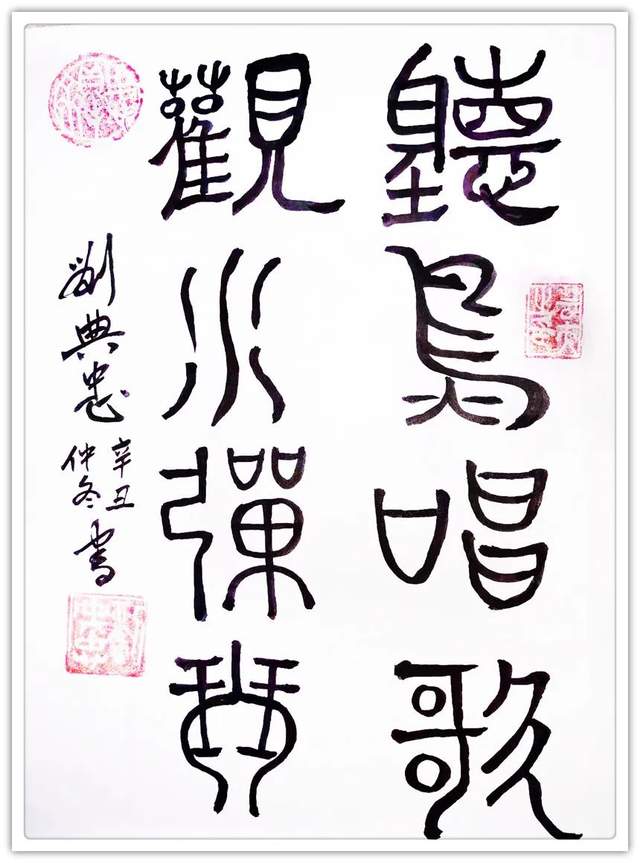 聽鳥唱歌
觀水彈琴
劉典忠
辛丑
仲冬書